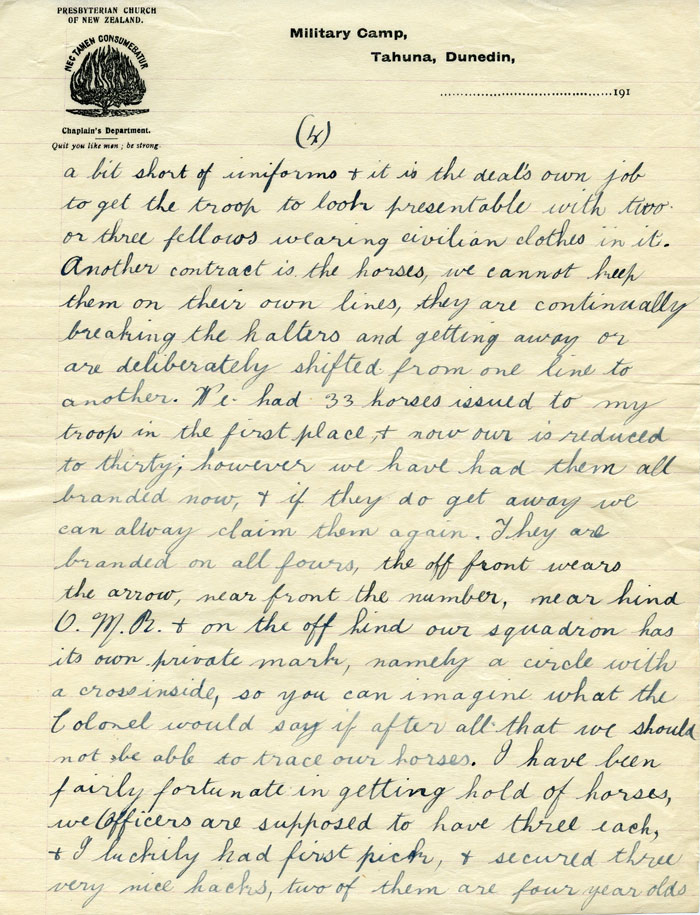 PRESBYTERIAN CHURCH
OF NEW ZEALAND.
NEC TAMEN CONSUMEBATUR
Chaplain's Department.
Quit you like men ; be strong.
Military Camp,
Tahuna, Dunedin,
191
(4)
a bit short of uniforms & it is the deal's own job
to get the troop to look presentable with two
or three fellows wearing civilian clothes in it.
Another contract is the horses, we cannot keep
them on their own lines, they are continually
breaking the halters and getting away or
are deliberately shifted from one line to
another. We had 33 horses issued to my
troop in the first place, & now our is reduced
to thirty; however we have had them all
branded now, & if they do get away we
can alway claim them again. They are
branded on all fours, the off front wears
the arrow, near front the number, near hind
O. M. R. & on the off hind our squadron has
its own private mark, namely a circle with
a cross inside, so you can imagine what the
Colonel would say if after all that we should
not be able to trace our horses. I have been
fairly fortunate in getting hold of horses,
we Officers are supposed to have three each,
& I luckily had first pick, & secured three
very nice hacks, two of them are four year olds